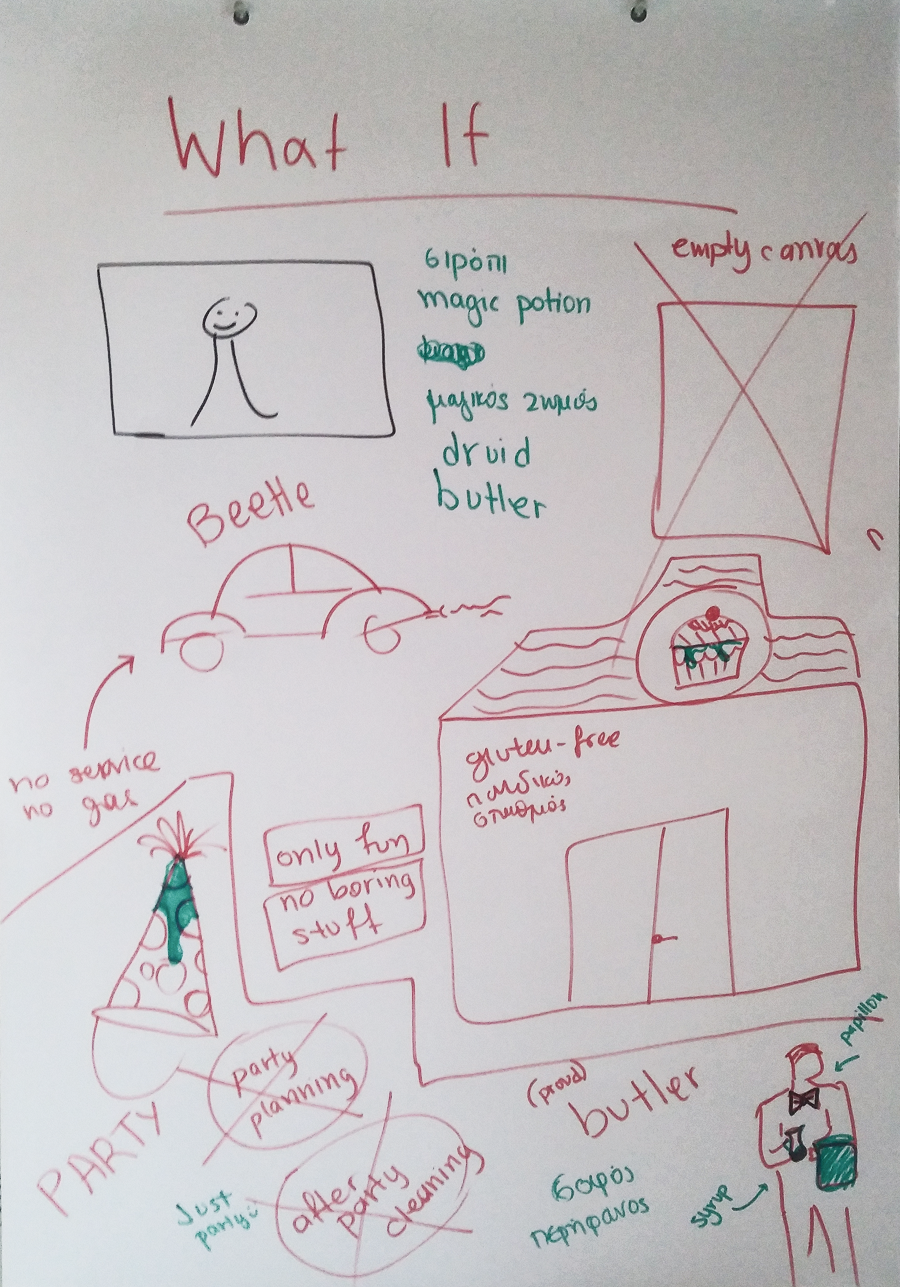 What If
empty canvas
σιρόπι
magic potion
μαγικός ζωμός
druid
butler
Beetle
no service
no gas
gluten-free
παιδικός
σταθμός
only fun
no boring
stuff
papillon
party
planning
(proud)
butler
PARTY
after
party
cleaning
Just
party
σοφός
περήφανος
syrup